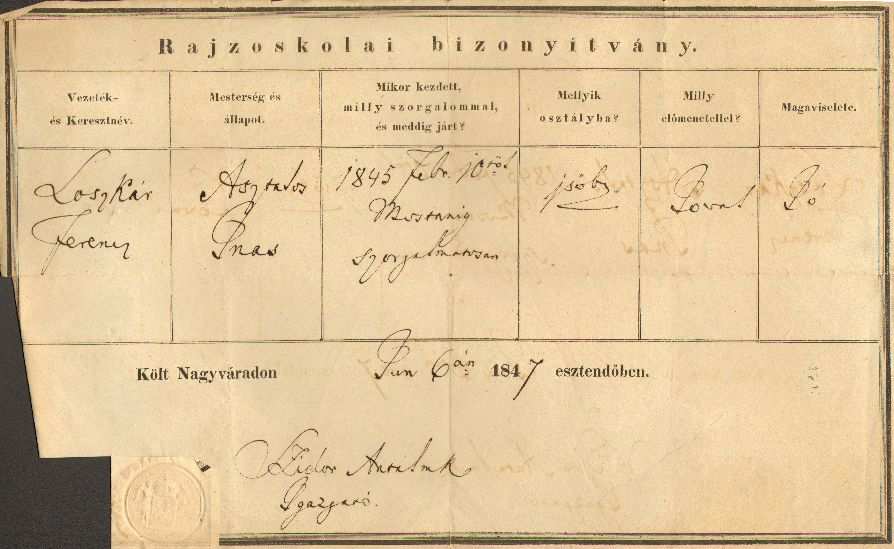 Rajzoskolai bizonyítvány.
Vezeték-
és Keresztnév.
Mesterség és
állapot.
Mikor kezdett,
milly szorgalommal,
és meddig járt?
Mellyik
osztályba?
Milly
előmenetellel?
Magaviselete.
Loszkár
Ferencz
Asztalos
Inas
1845 Febr. 10től
Mostanig
szorgalmatosan
1sőbe
Jó
Költ Nagyváradon Jun 6án 1847 esztendőben.
Szidor Antal mk
Igazgató.